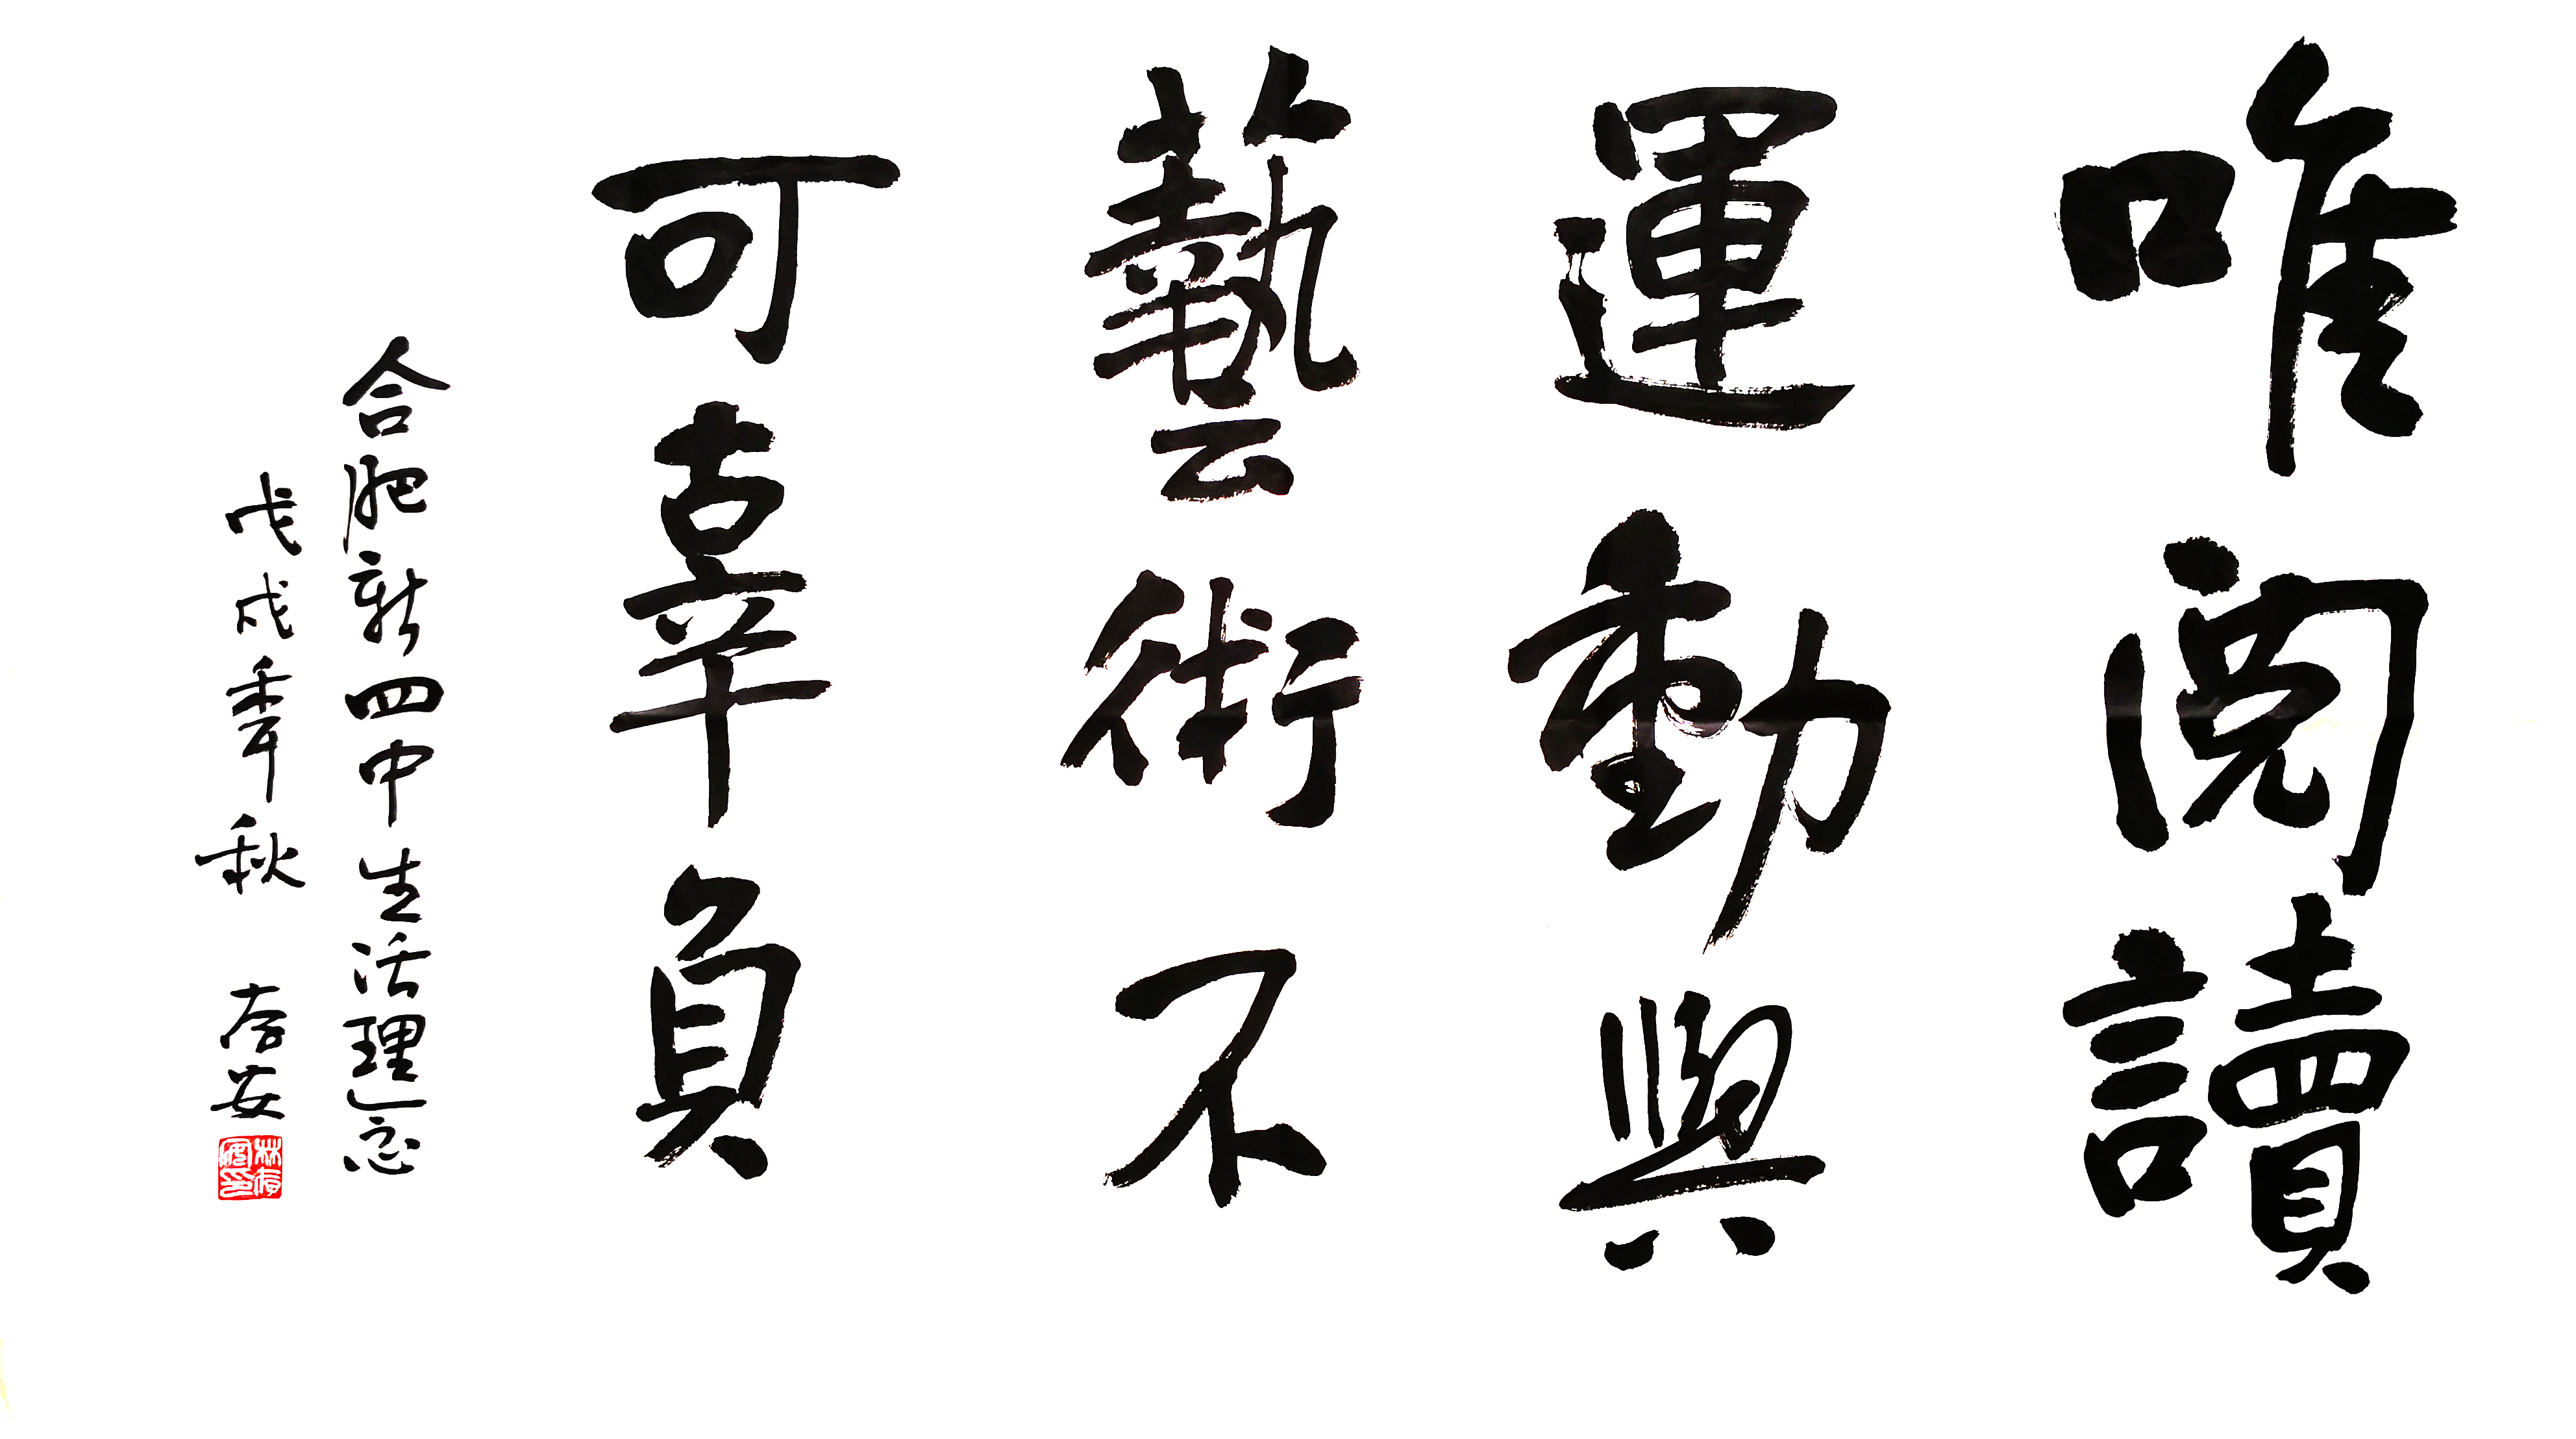 唯閲讀
運動與
藝術不
可辜負
合肥新四中生活理念
戊戌季秋